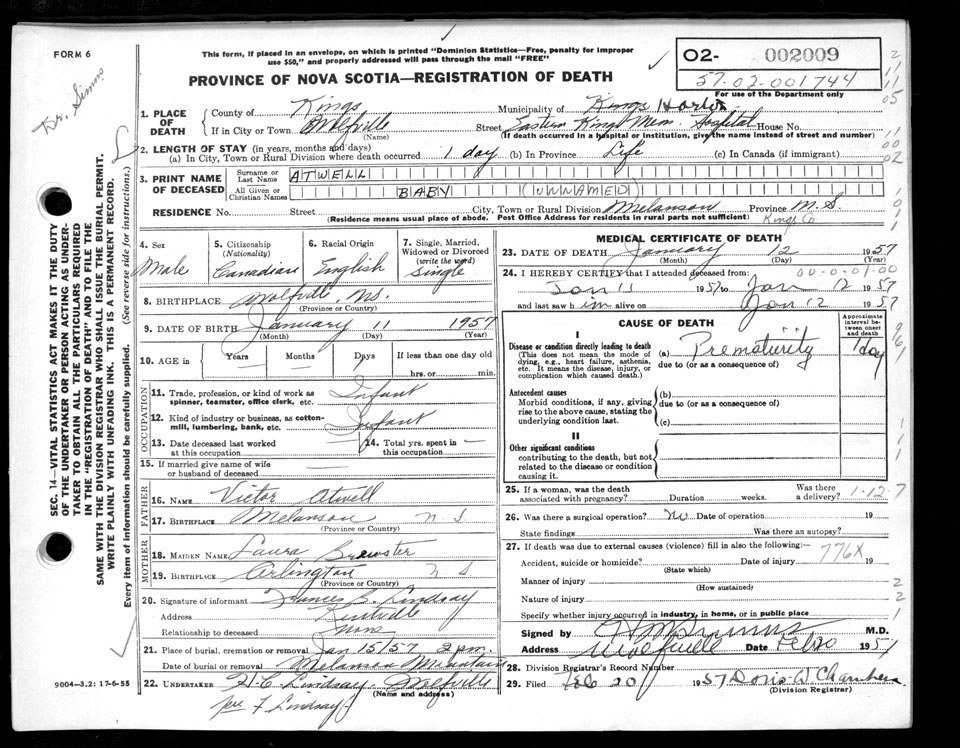 FORM 6
Dr. Simms
This form, if placed in an envelope, on which is printed "Dominion Statistics—Free, penalty for improper
use $50," and properly addressed will pass through the mail "FREE"
PROVINCE OF NOVA SCOTIA—REGISTRATION OF DEATH
02- 002009
57-02-001744
For use of Department only
1. PLACE OF DEATH
County of Kings Municipality of Kings
If in City or Town Wolfville (Name) Street Eastern Kings Mem. Hospital House No.
(If death occurred in a hospital or institution, give the name instead of street and number)
2. LENGTH OF STAY (in years, months and days)
(a) In City, Town or Rural Division where death occurred 1 day (b) In Province Life (c) In Canada (if immigrant)
3. PRINT NAME OF DECEASED
Surname or Last Name ATWELL
All Given or Christian Names BABY (UNNAMED)
RESIDENCE No. Street City, Town or Rural Division Melanson Province N.S.
(Residence means usual place of abode. Post Office Address for residents in rural parts not sufficient) Kings Co
4. Sex Male
5. Citizenship (Nationality) Canadian
6. Racial Origin English
7. Single, Married, Widowed or Divorced (write the word) Single
8. BIRTHPLACE Wolfville, NS.
(Province or Country)
9. DATE OF BIRTH January 11 1957
(Month) (Day) (Year)
10. AGE in Years Months Days If less than one day old
hrs. or min.
OCCUPATION
11. Trade, profession, or kind of work as spinner, teamster, office clerk, etc. Infant
12. Kind of industry or business, as cotton-mill, lumbering, bank, etc. Infant
13. Date deceased last worked at this occupation —
14. Total yrs. spent in this occupation —
15. If married give name of wife or husband of deceased —
FATHER
16. NAME Victor Atwell
17. BIRTHPLACE Melanson N S
(Province or Country)
MOTHER
18. MAIDEN NAME Laura Brewster
19. BIRTHPLACE Arlington N S
(Province or Country)
20. Signature of informant Frances B. Lindsay
Address Kentville
Relationship to deceased None
21. Place of burial, cremation or removal Jan 15/57 2 pm.
Date of burial or removal Melanson Mountain
22. UNDERTAKER H. C. Lindsay Wolfville
(Name and address)
per F Lindsay
9004—3.2: 17-6-55
MEDICAL CERTIFICATE OF DEATH
23. DATE OF DEATH January 12 1957
(Month) (Day) (Year)
24. I HEREBY CERTIFY that I attended deceased from: 00-0-01-00
Jan 11 1957 to Jan 12 1957
and last saw him alive on Jan 12 1957
CAUSE OF DEATH
Approximate interval between onset and death
I
Disease or condition directly leading to death
(This does not mean the mode of dying, e.g., heart failure, asthenia, etc. It means the disease, injury, or complication which caused death.)
(a) Prematurity 1 day
due to (or as a consequence of)
Antecedent causes
Morbid conditions, if any, giving rise to the above cause, stating the underlying condition last.
(b)
due to (or as a consequence of)
(c)
II
Other significant conditions
contributing to the death, but not related to the disease or condition causing it.
25. If a woman, was the death associated with pregnancy? Duration weeks. Was there a delivery? 1-12-7
26. Was there a surgical operation? No Date of operation 19
State findings Was there an autopsy?
27. If death was due to external causes (violence) fill in also the following:—
776X
Accident, suicide or homicide? Date of injury 19
(State which)
Manner of injury
(How sustained)
Nature of injury
Specify whether injury occurred in industry, in home, or in public place
Signed by M.D.
Address Wolfville Date Feb 1957
28. Division Registrar's Record Number
29. Filed Feb 20 1957 Doris W Chambers
(Division Registrar)
SEC. 14—VITAL STATISTICS ACT MAKES IT THE DUTY
OF THE UNDERTAKER OR PERSON ACTING AS UNDER-
TAKER TO OBTAIN ALL THE PARTICULARS REQUIRED
IN THE "REGISTRATION OF DEATH" AND TO FILE THE
SAME WITH THE DIVISION REGISTRAR WHO SHALL ISSUE THE BURIAL PERMIT.
WRITE PLAINLY WITH UNFADING INK. THIS IS A PERMANENT RECORD.
Every item of information should be carefully supplied. (See reverse side for instructions.)